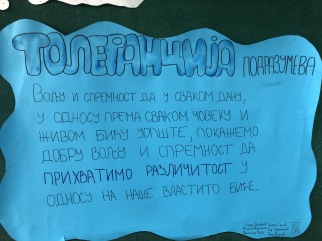 ТОЛЕРАНЦИЈА ПОДРАЗУМЕВА
ВОЉУ И СПРЕМНОСТ ДА У СВАКОМ ДАНУ,
У ОДНОСУ ПРЕМА СВАКОМ ЧОВЕКУ И
ЖИВОМ БИЋУ УОПШТЕ, ПОКАЖЕМО
ДОБРУ ВОЉУ И СПРЕМНОСТ ДА
ПРИХВАТИМО РАЗЛИЧИТОСТ У
ОДНОСУ НА НАШЕ ВЛАСТИТО БИЋЕ.